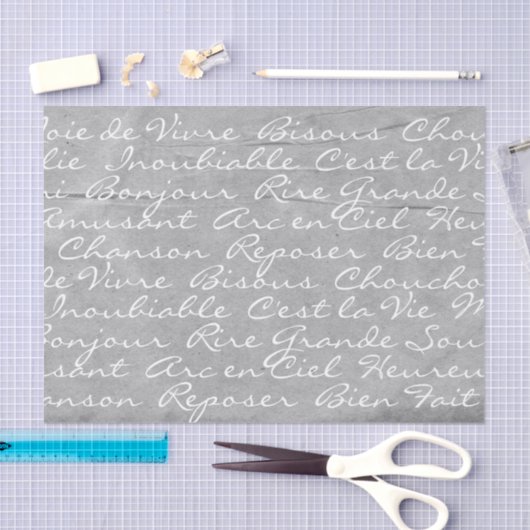 Joie de Vivre Bisous Chou
lie Inoubiable C'est la Vi
i Bonjour Rire Grande S
Amusant Arc en Ciel Heu
Chanson Reposer Bien
de Vivre Bisous Choucho
Inoubiable C'est la Vie M
Bonjour Rire Grande Sou
usant Arc en Ciel Heureu
anson Reposer Bien Fait